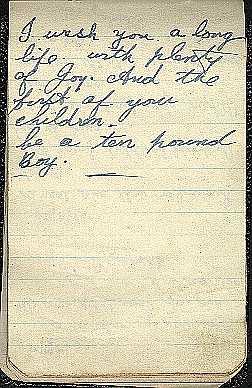 I wish you a long
life with plenty
of Joy. And the
first of your
children.
be a ten pound
Boy.